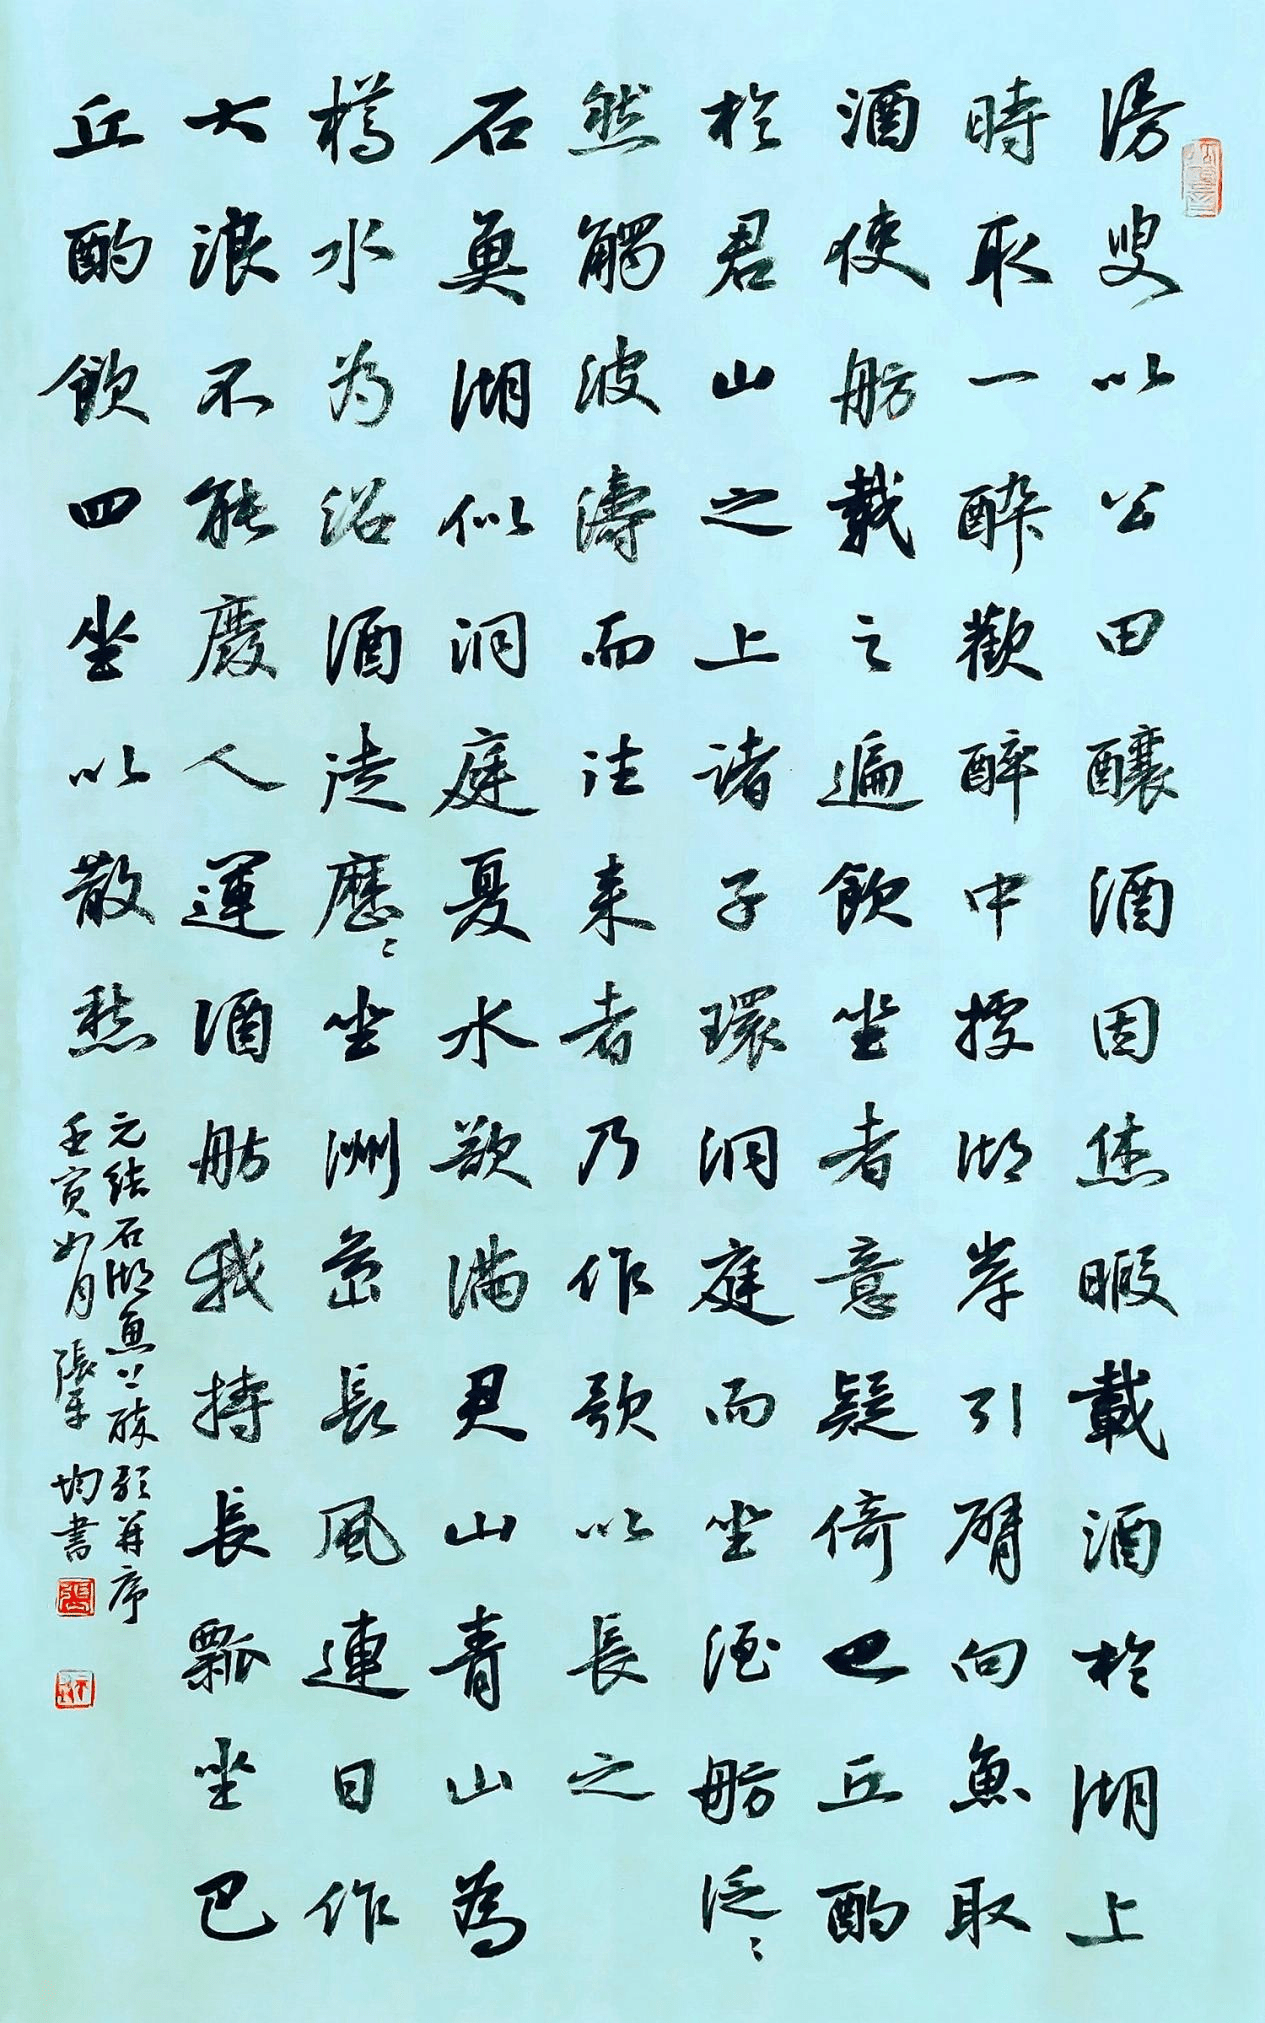 漫叟以公田釀酒因休暇載酒於湖上
時取一醉歡醉中據湖岸引臂向魚取
酒使舫載之遍飲坐者意疑倚巴丘酌
於君山之上諸子環洞庭而坐酒舫泛泛
然觸波濤而往来者乃作歌以長之
石魚湖似洞庭夏水欲滿君山青山為
樽水為沼酒徒歷歷坐洲島長風連日作
大浪不能廢人運酒舫我持長瓢坐巴
丘酌飲四坐以散愁
元結石湖魚上醉歌并序
壬寅如月張平均書